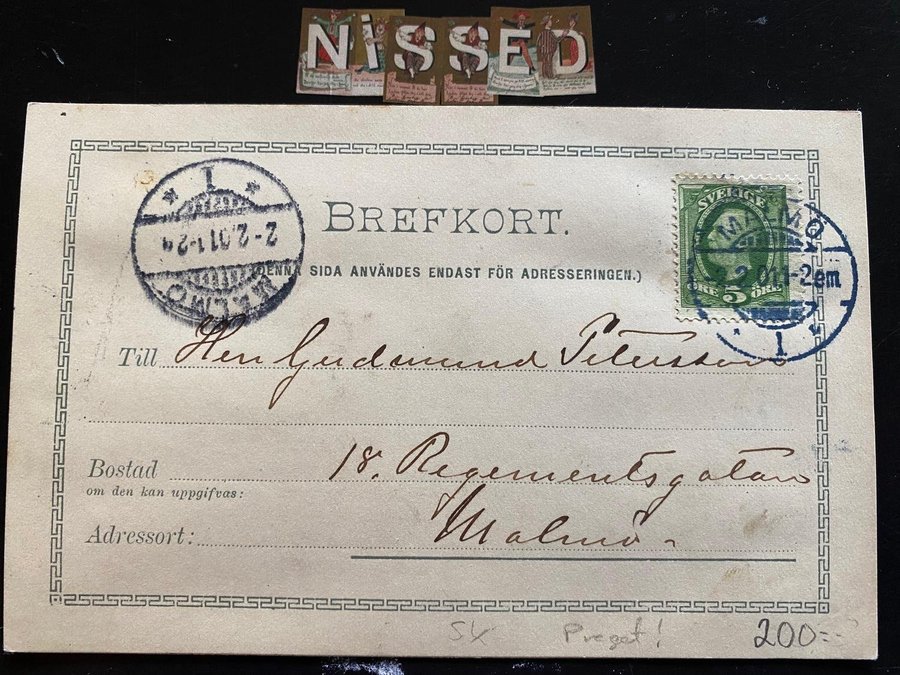 NiSSED
BREFKORT.
(DENNA SIDA ANVÄNDES ENDAST FÖR ADRESSERINGEN.)
1
2-2.01 1-2
MALMÖ
SVERIGE
5
ÖRE ÖRE
MALMÖ
2.2.01 1-2em
1
Till Herr Gudmund Petersson
Bostad 18. Regementsgatan
om den kan uppgifvas:
Adressort: Malmö
Preget!
200=